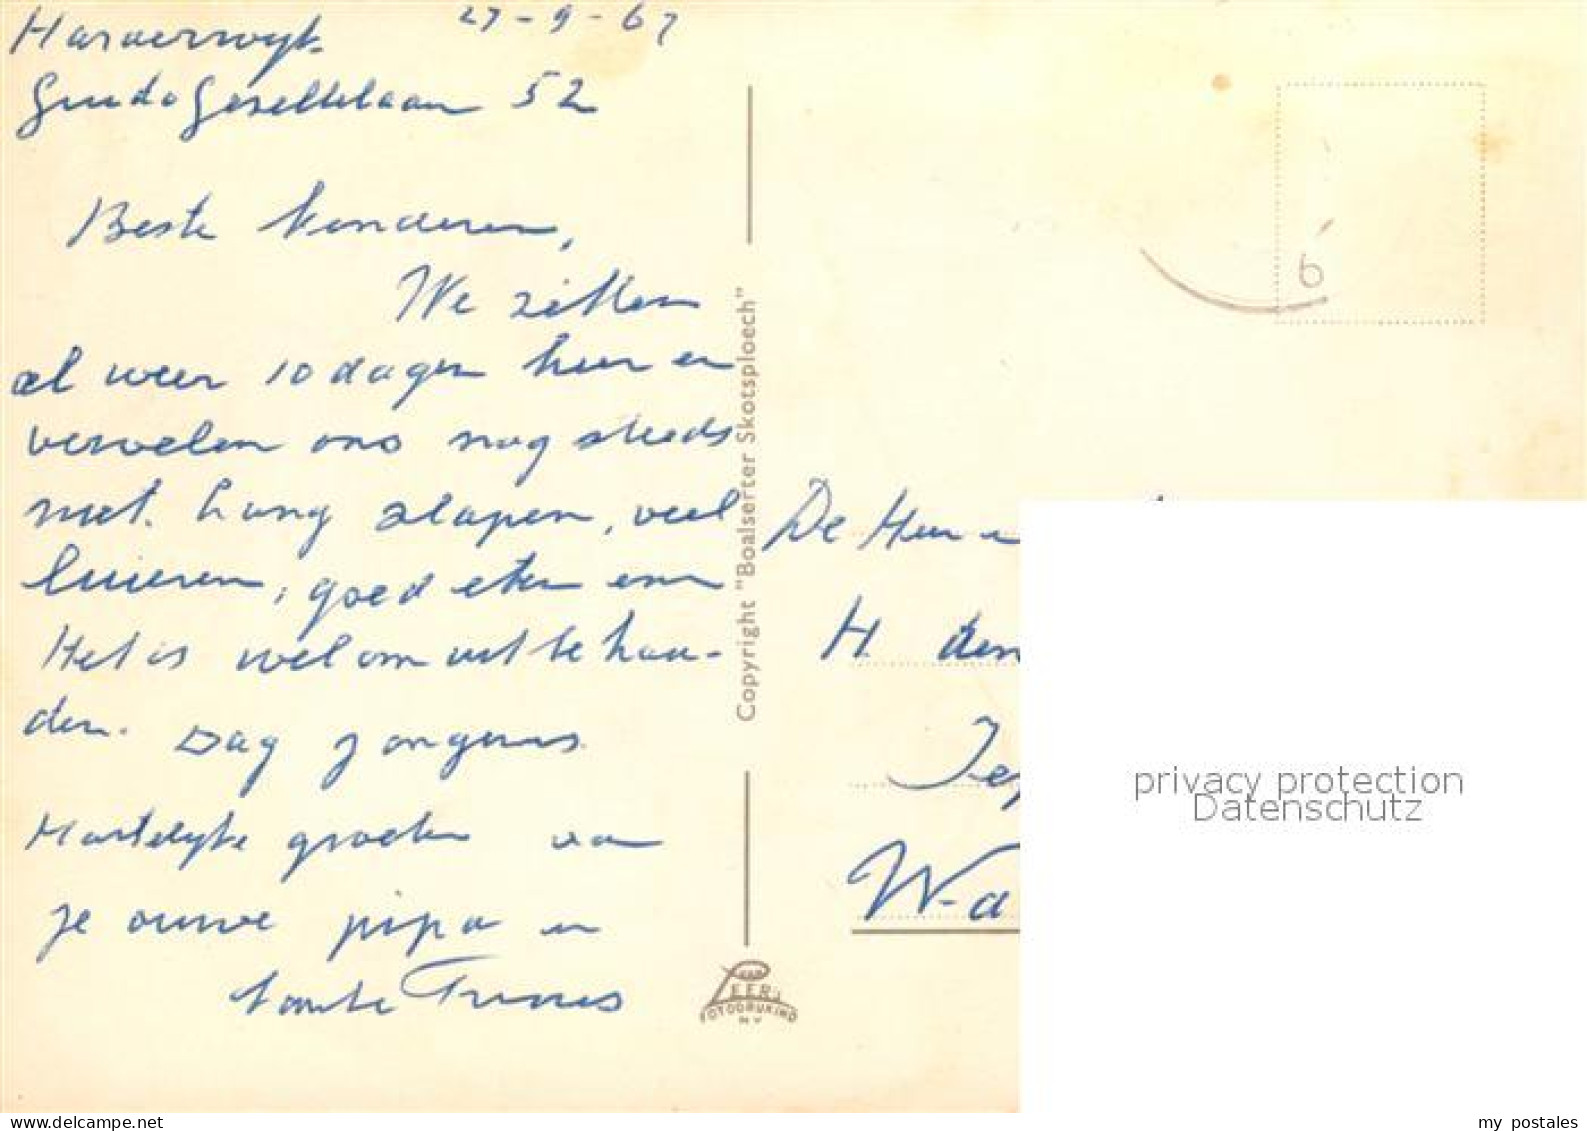 Harderwijk 27-9-67
Guido Gezellelaan 52
Beste kinderen,
We zitten
al weer 10 dagen hier en
vervelen ons nog steeds
niet. Lang slapen, veel
luieren, goed eten enz
Het is wel om uit te hou-
den. Dag jongens
Hartelijke groeten van
je ouwe pipa en
tante Truus
Copyright "Boalserter Skotsploech"
VAN LEER'S
FOTODRUKIND
NV
6
De Heer
H. den
W-d
privacy protection
Datenschutz
delcampe.net
my_postales